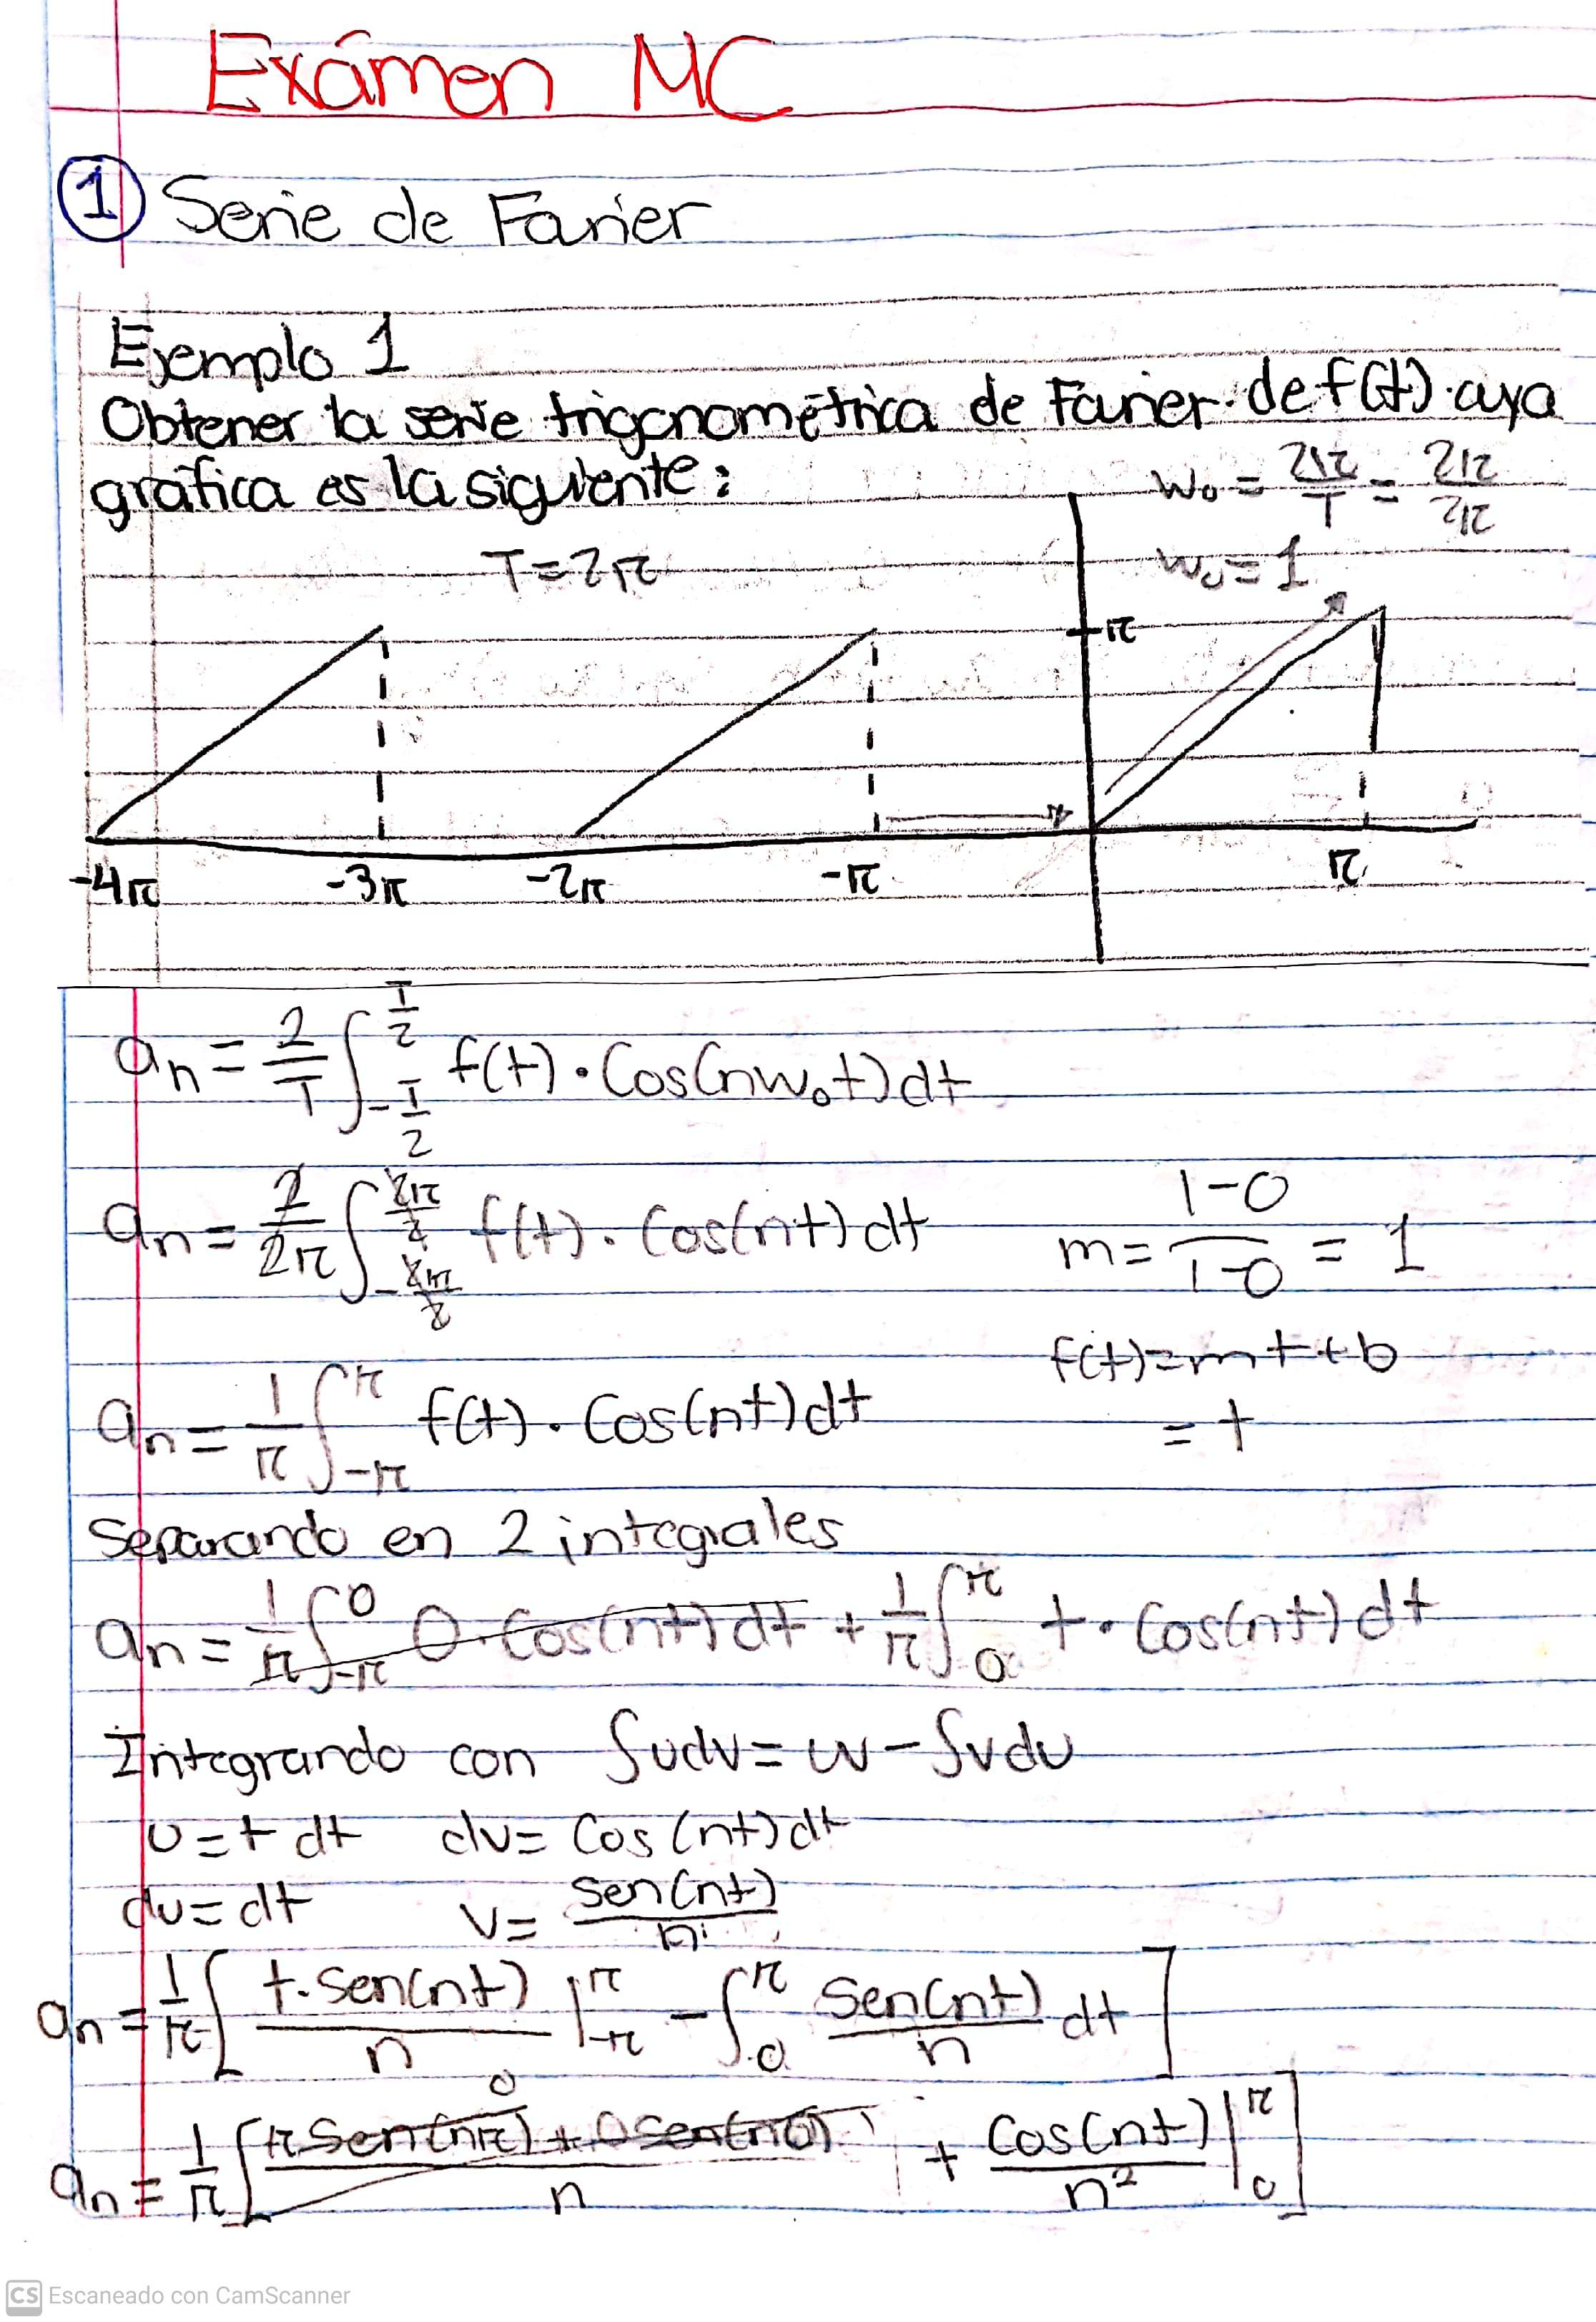 Exámen MC
1 Serie de Fourier
Ejemplo 1
Obtener la serie trigonométrica de Fourier de f(t) cuya
gráfica es la siguiente:
W₀ = 2π/T = 2π/2π
T=2π
W₀=1
π
-4π -3π -2π -π π
aₙ = 2/T ∫_{-T/2}^{T/2} f(t)·Cos(nW₀t)dt
aₙ = 2/2π ∫_{-2π/2}^{2π/2} f(t)·Cos(nt)dt
m = 1-0/1-0 = 1
f(t)=mt+b
= t
aₙ = 1/π ∫_{-π}^{π} f(t)·Cos(nt)dt
Separando en 2 integrales
aₙ = 1/π ∫_{-π}^{0} 0·Cos(nt)dt + 1/π ∫_{0}^{π} t·Cos(nt)dt
Integrando con ∫udv=uv-∫vdu
u=t dt dv= Cos(nt)dt
du=dt v= Sen(nt)/n
aₙ = 1/π [ t·Sen(nt)/n |_{-π}^{π} - ∫_{0}^{π} Sen(nt)/n dt ]
0
aₙ = 1/π [ πSen(nπ)+0Sen(n0)/n + Cos(nt)/n² |_{0}^{π} ]
CS Escaneado con CamScanner